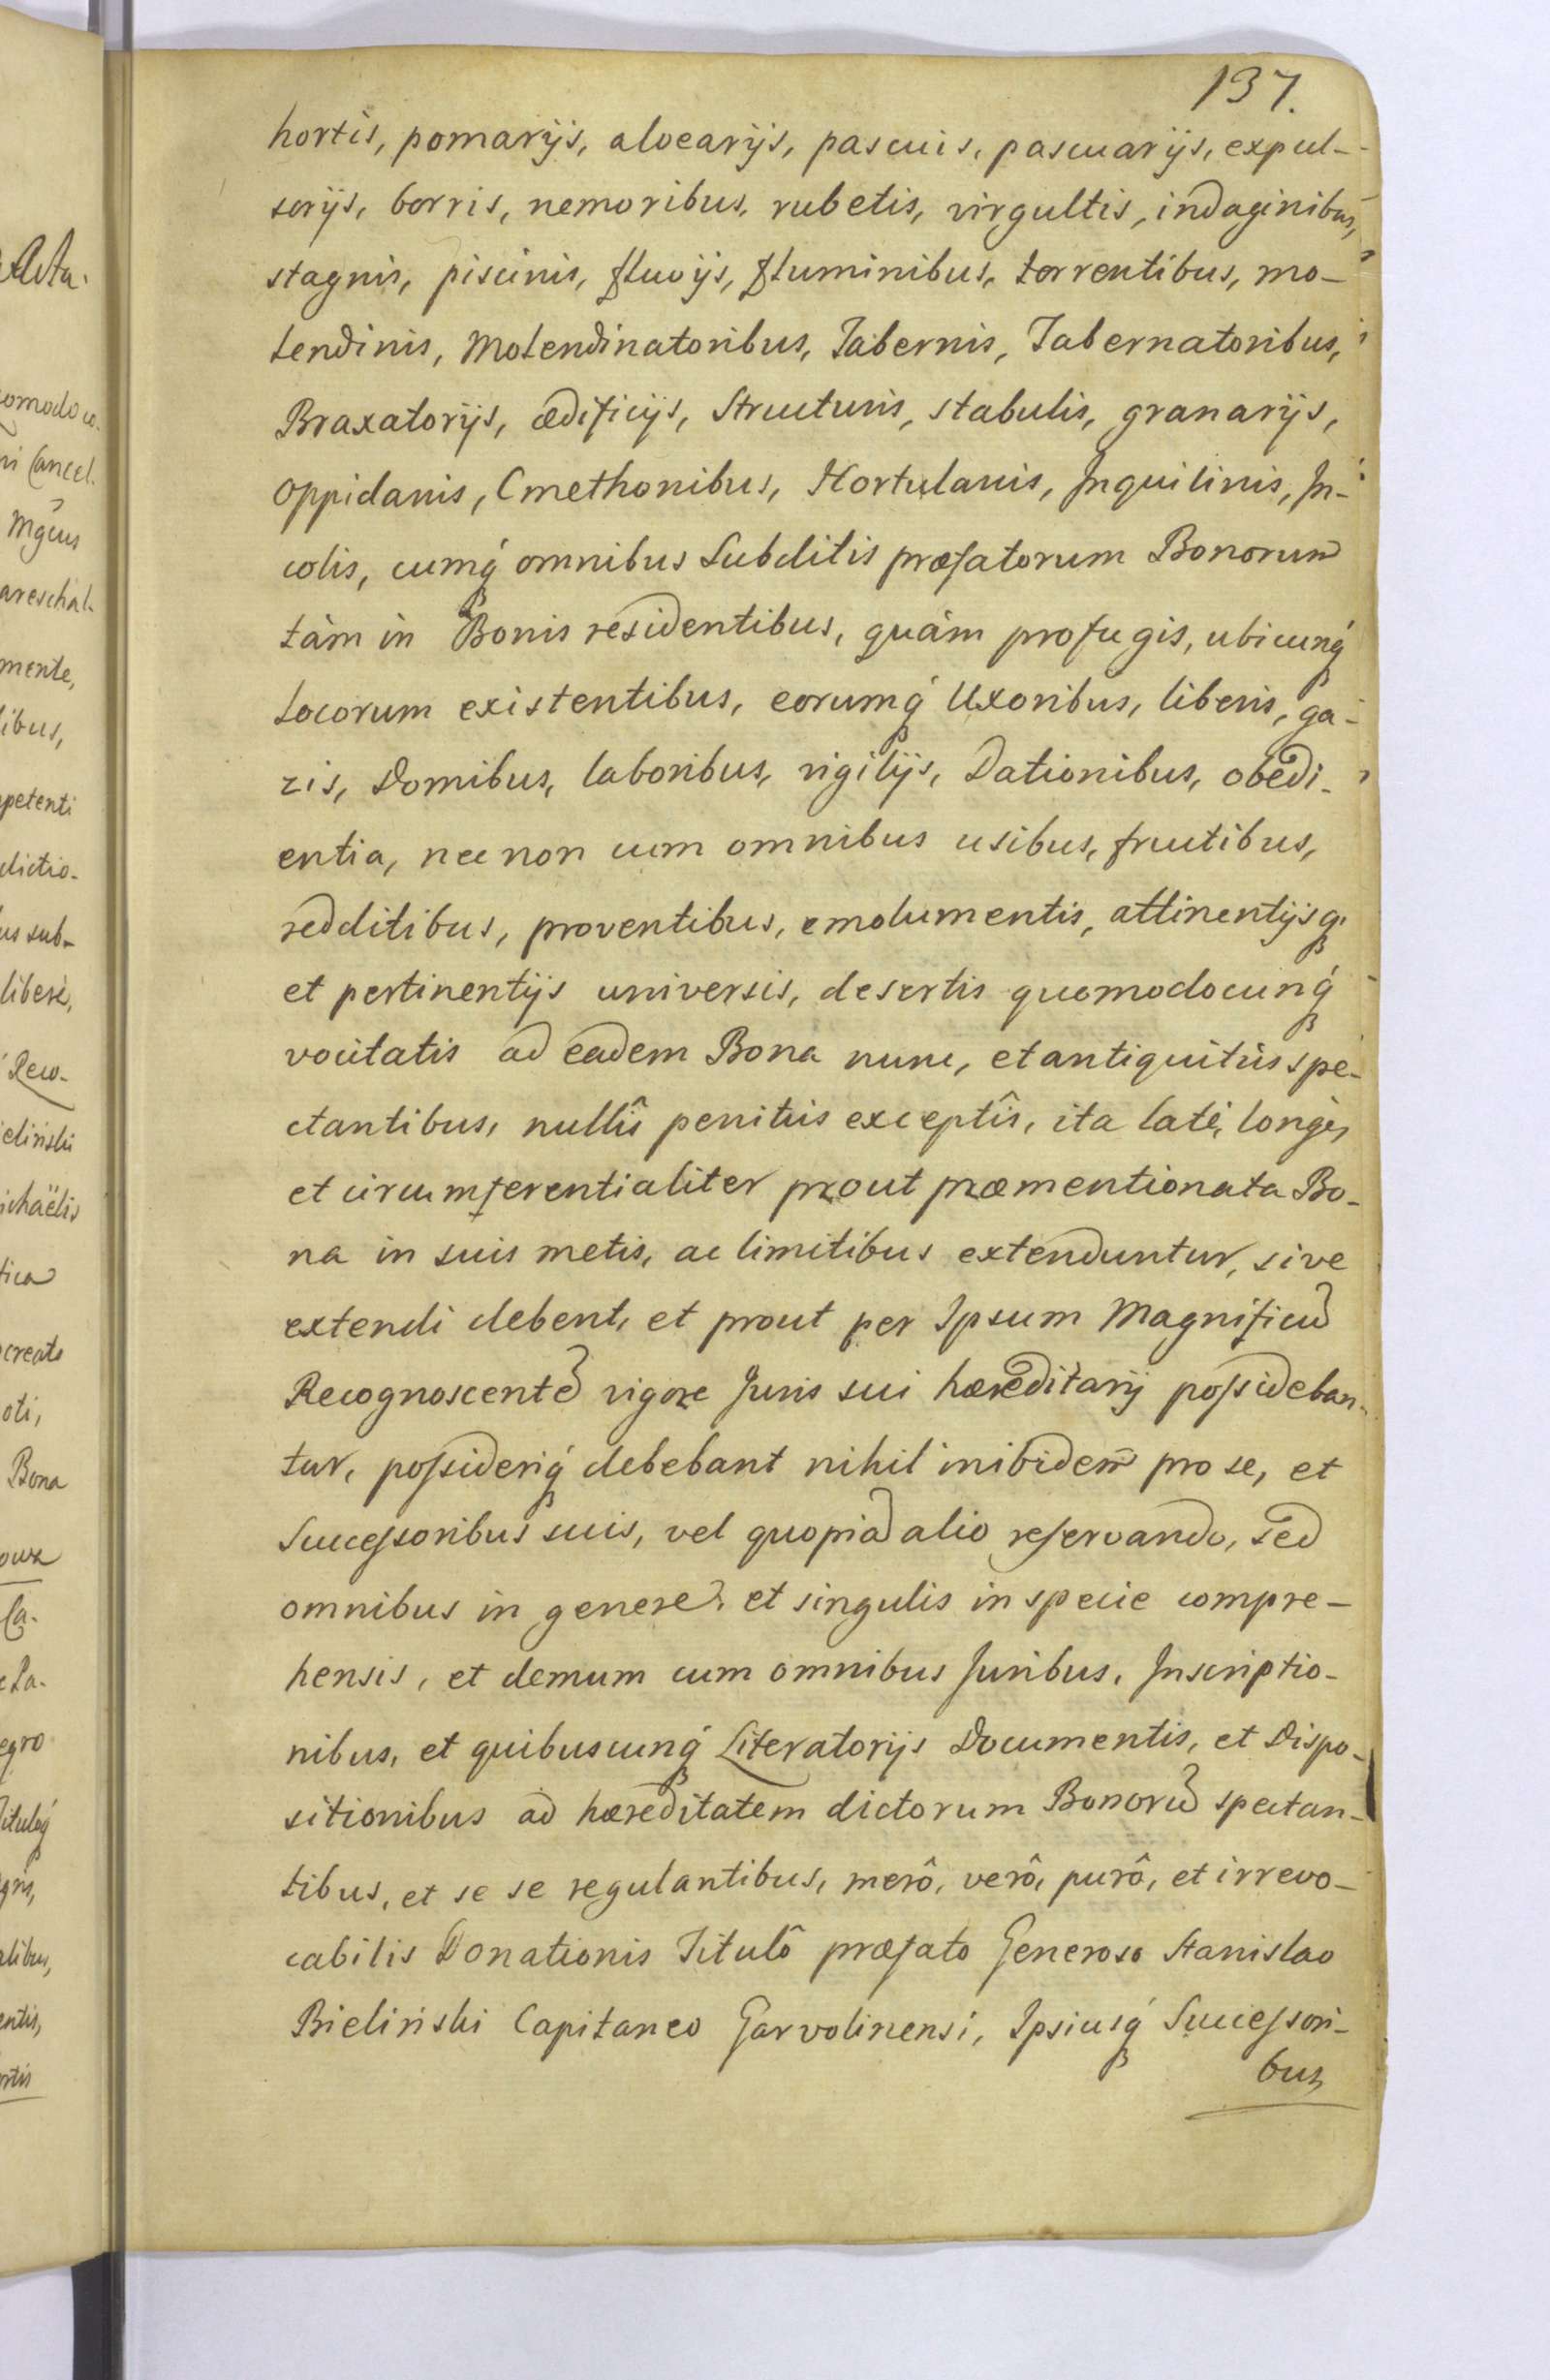 137.
hortis, pomarijs, alvearijs, pascuis, pascuarijs, expul-
sorijs, borris, nemoribus, rubetis, virgultis, indaginibus,
stagnis, piscinis, fluvijs, fluminibus, torrentibus, mo-
lendinis, Molendinatoribus, Tabernis, Tabernatoribus,
Braxatorijs, ædificijs, Structuris, stabulis, granarijs,
Oppidanis, Cmethonibus, Hortulanis, Inquilinis, In-
colis, cumq́ omnibus Subditis præfatorum Bonorum
tàm in Bonis residentibus, quàm profugis, ubicunq́
locorum existentibus, eorumq́ Uxoribus, liberis, ga-
zis, Domibus, laboribus, vigilijs, Dationibus, obedi-
entia, nec non cum omnibus usibus, fructibus,
redditibus, proventibus, emolumentis, attinentijsq́
et pertinentijs universis, desertis quomodocunq́
vocitatis ad eadem Bona nunc, et antiquitùs spe-
ctantibus, nullîs penitùs exceptîs, ita latè, longè,
et circumferentialiter prout præmentionata Bo-
na in suis metis, ac limitibus extenduntur, sive
extendi debent, et prout per Ipsum Magnificũ
Recognoscentẽ vigore Juris sui hæreditarij possideban-
tur, possideriq́ debebant nihil inibidem pro se, et
Successoribus suis, vel quopiã alio reservando, sed
omnibus in genere, et singulis in specie compre-
hensis, et demum cum omnibus Juribus, Inscriptio-
nibus, et quibuscunq́ Literatorijs Documentis, et Dispo-
sitionibus ad hæreditatem dictorum Bonorũ spectan-
tibus, et se se regulantibus, merô, verô, purô, et irrevo-
cabilis Donationis Titulô præfato Generoso Stanislao
Bieliński Capitaneo Garvolinensi, Ipsiusq́ Successori-
bus